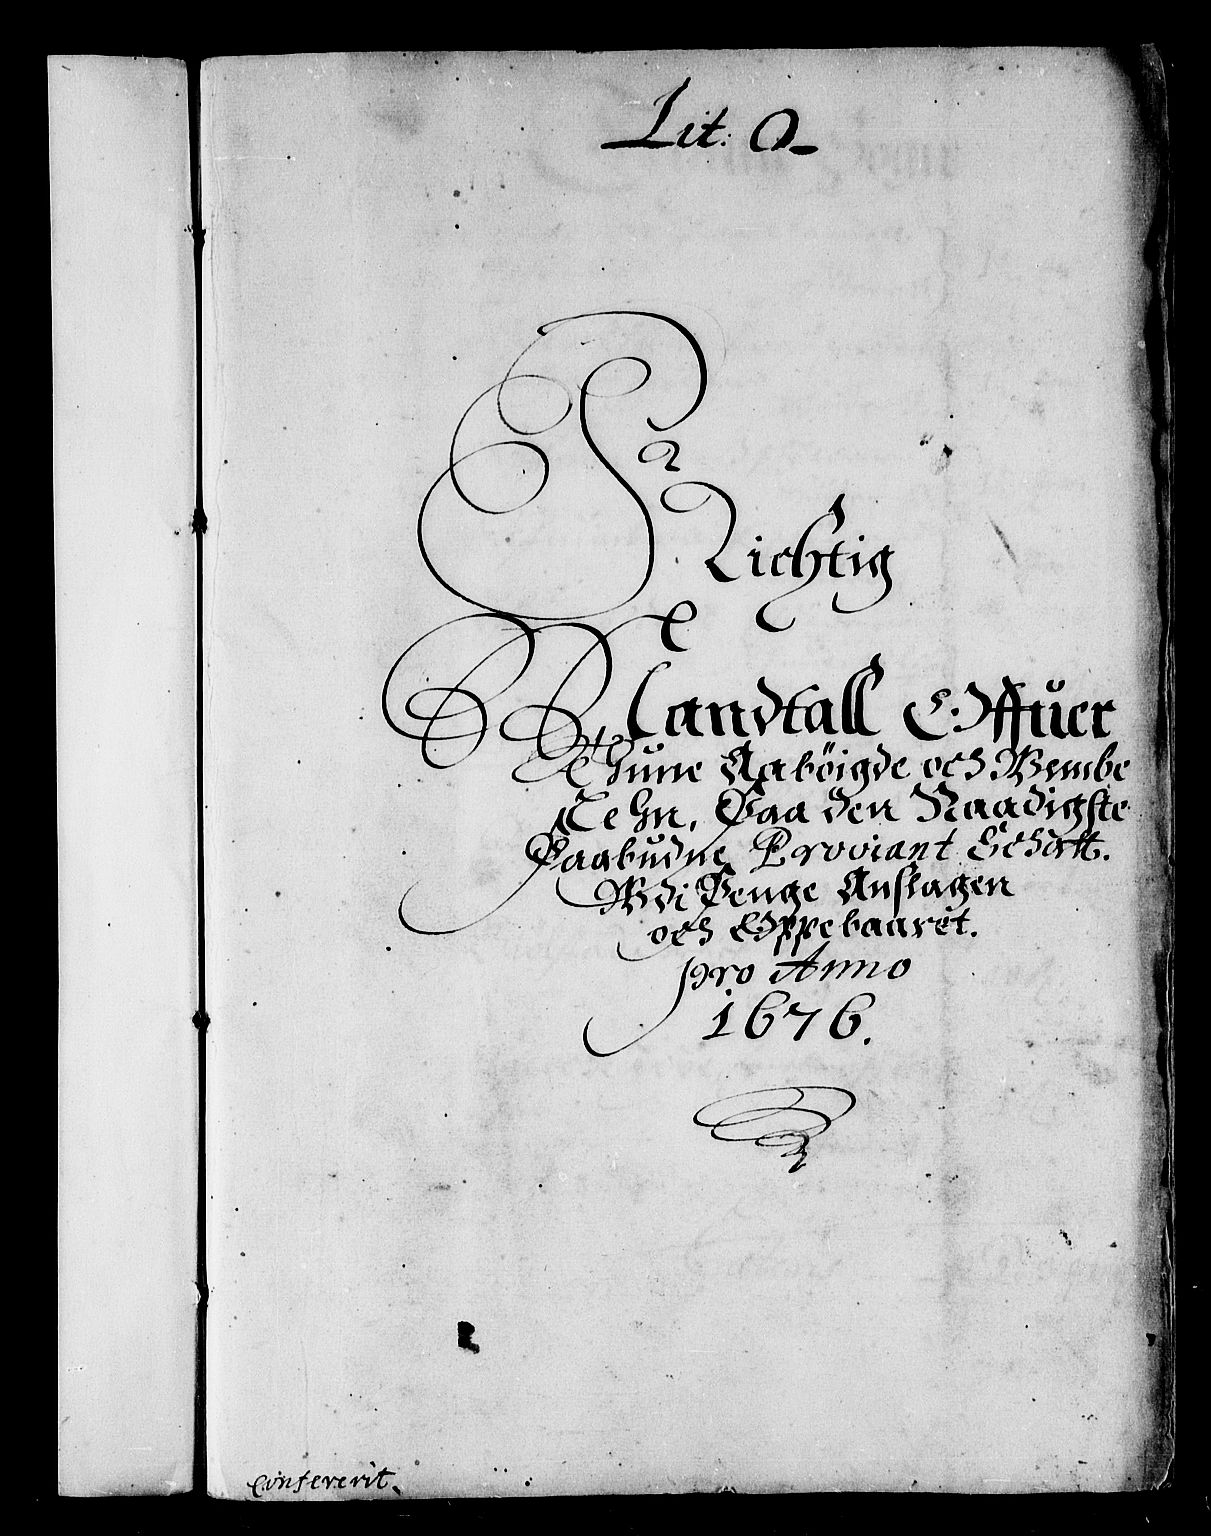 Lit: Q
Richtig
Mandtall Offuer
Thune Aabøigde och Wembe
Lehn, Paa den Naadigste
Paabudne Proviant Schatt.
Udi Penge Anslagen
och Oppebaaret.
pro Anno
1676.
Confererit.